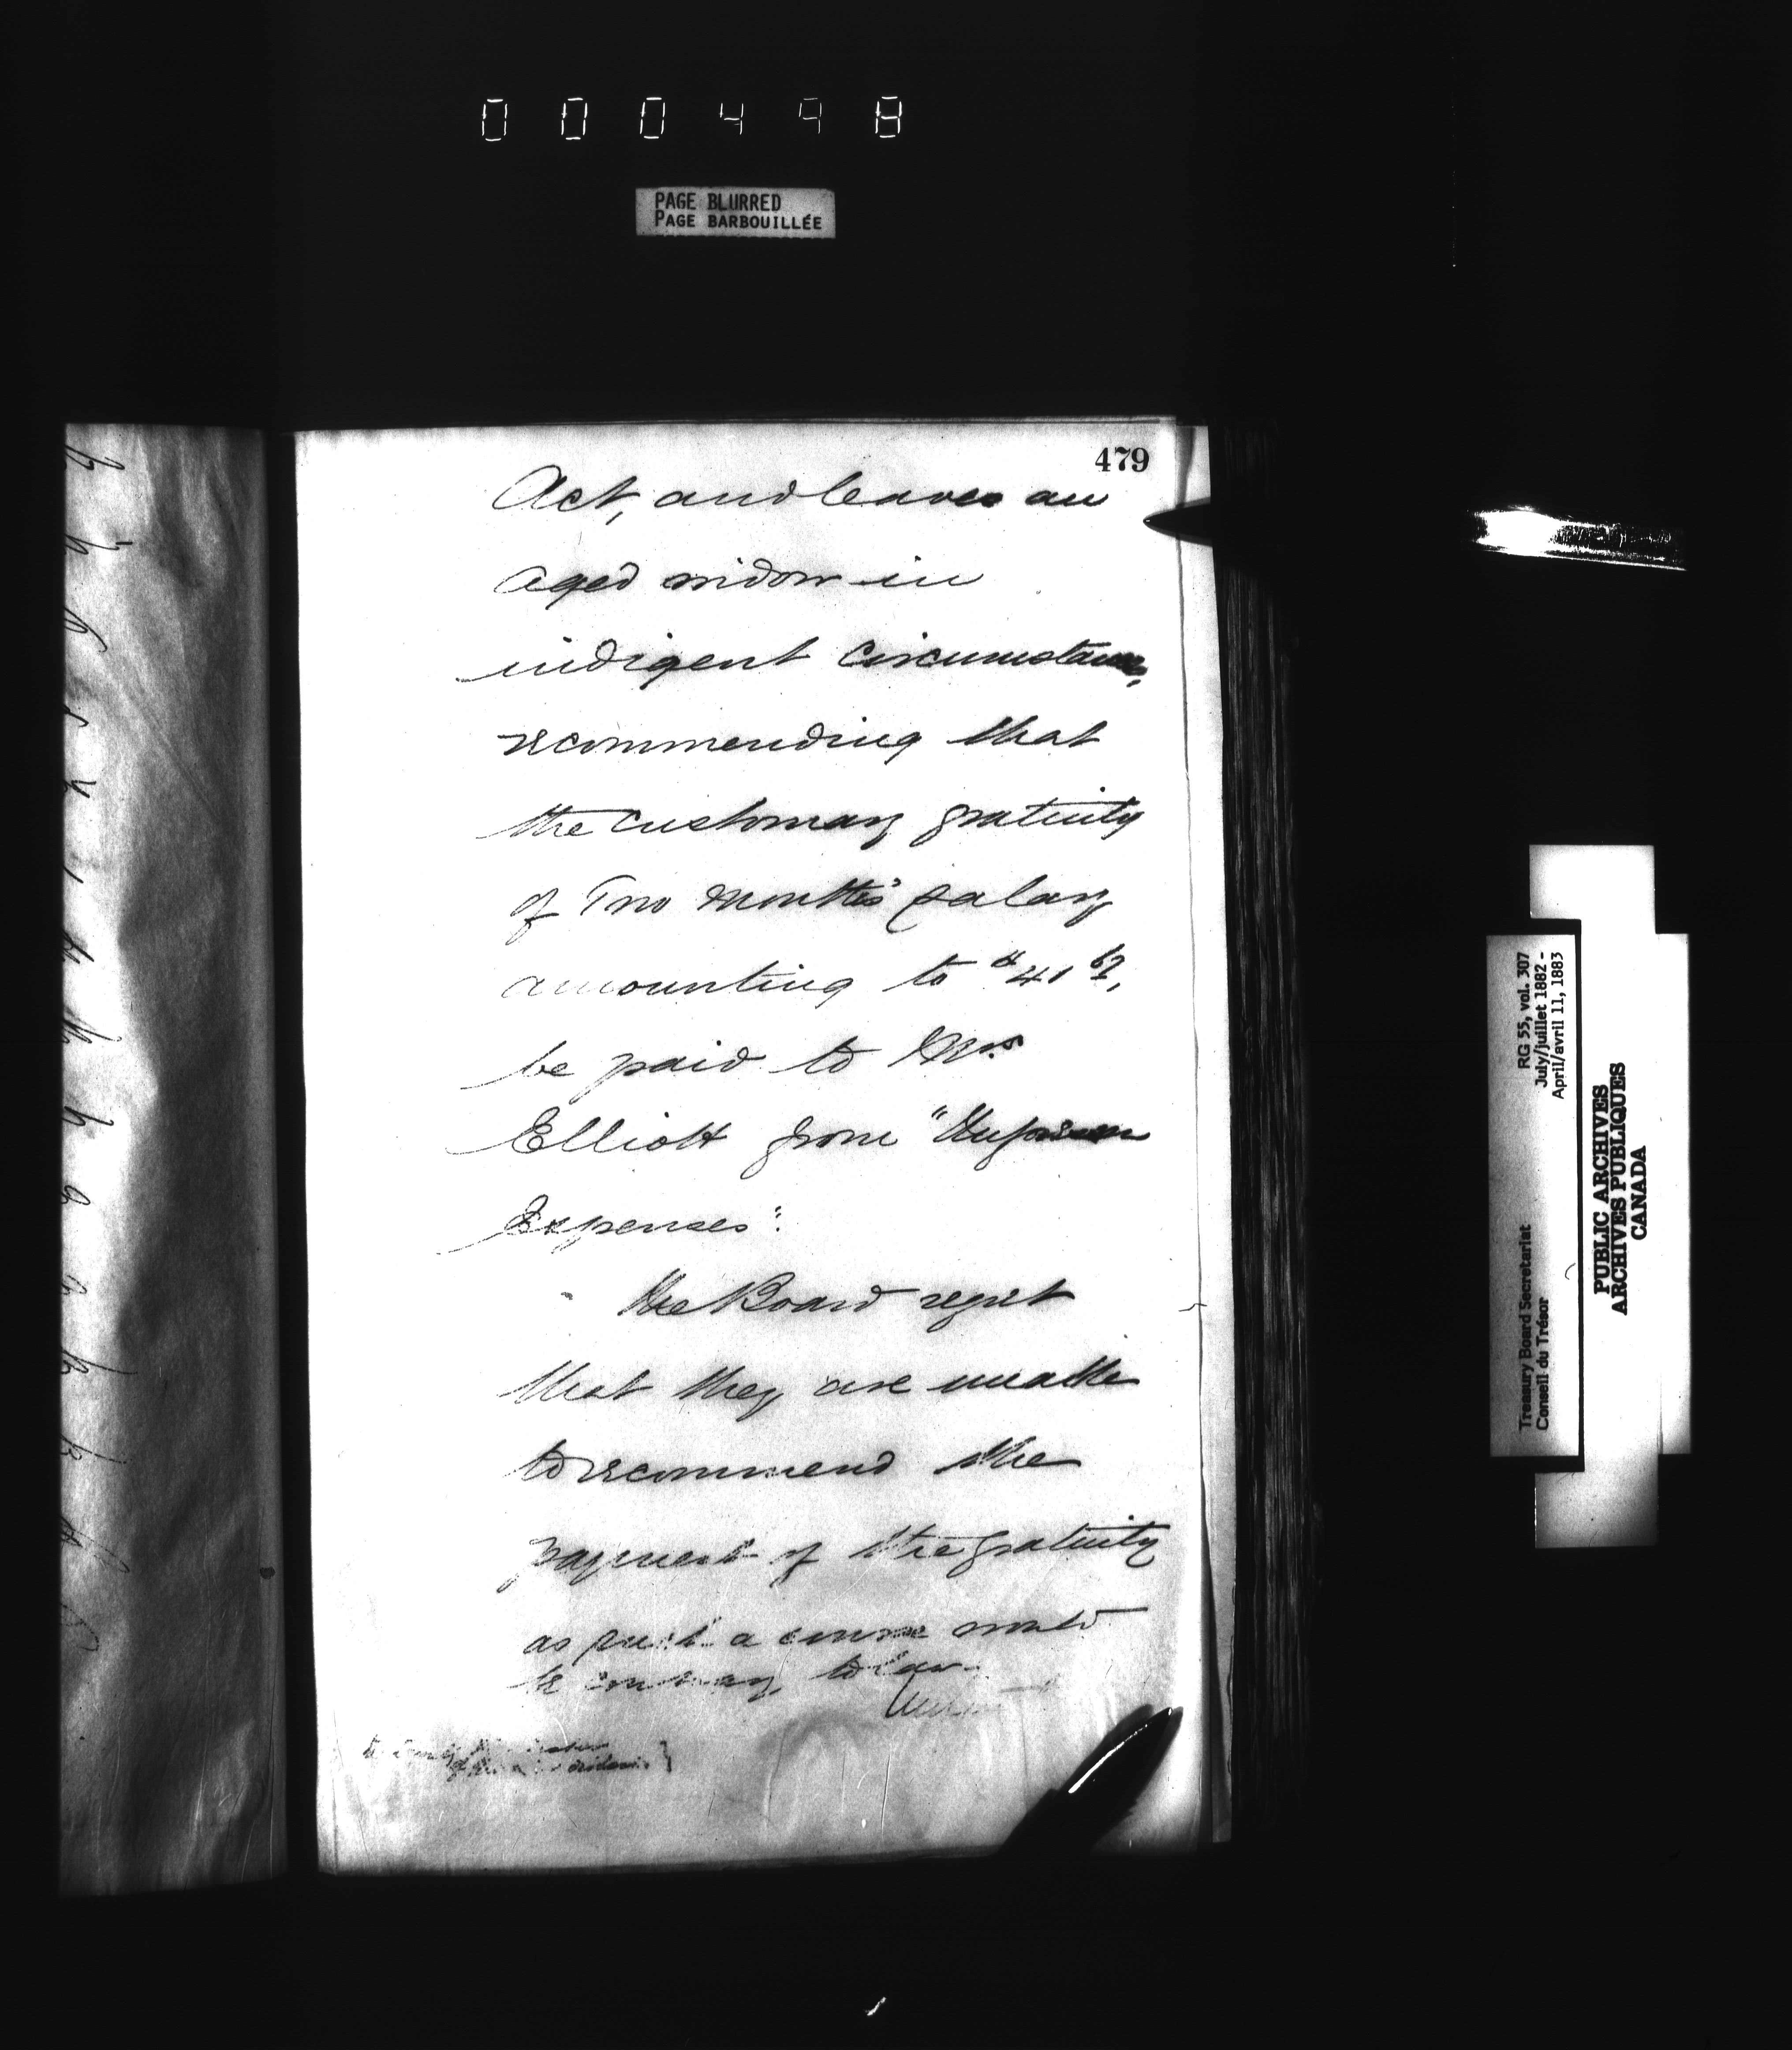 000498
PAGE BLURRED
PAGE BARBOUILLÉE
479
Act, and leaves an
aged widow in
indigent circumstances,
recommending that
the customary gratuity
of Two months' salary
amounting to $41 67,
be paid to Mrs
Elliott from "Unforeseen
Expenses".
The Board regret
that they are unable
to recommend the
payment of the gratuity
as such a course would
be contrary to law.
RG 55, vol. 307
July/juillet 1882 -
April/avril 11, 1883
Treasury Board Secretariat
Conseil du Trésor
PUBLIC ARCHIVES
ARCHIVES PUBLIQUES
CANADA